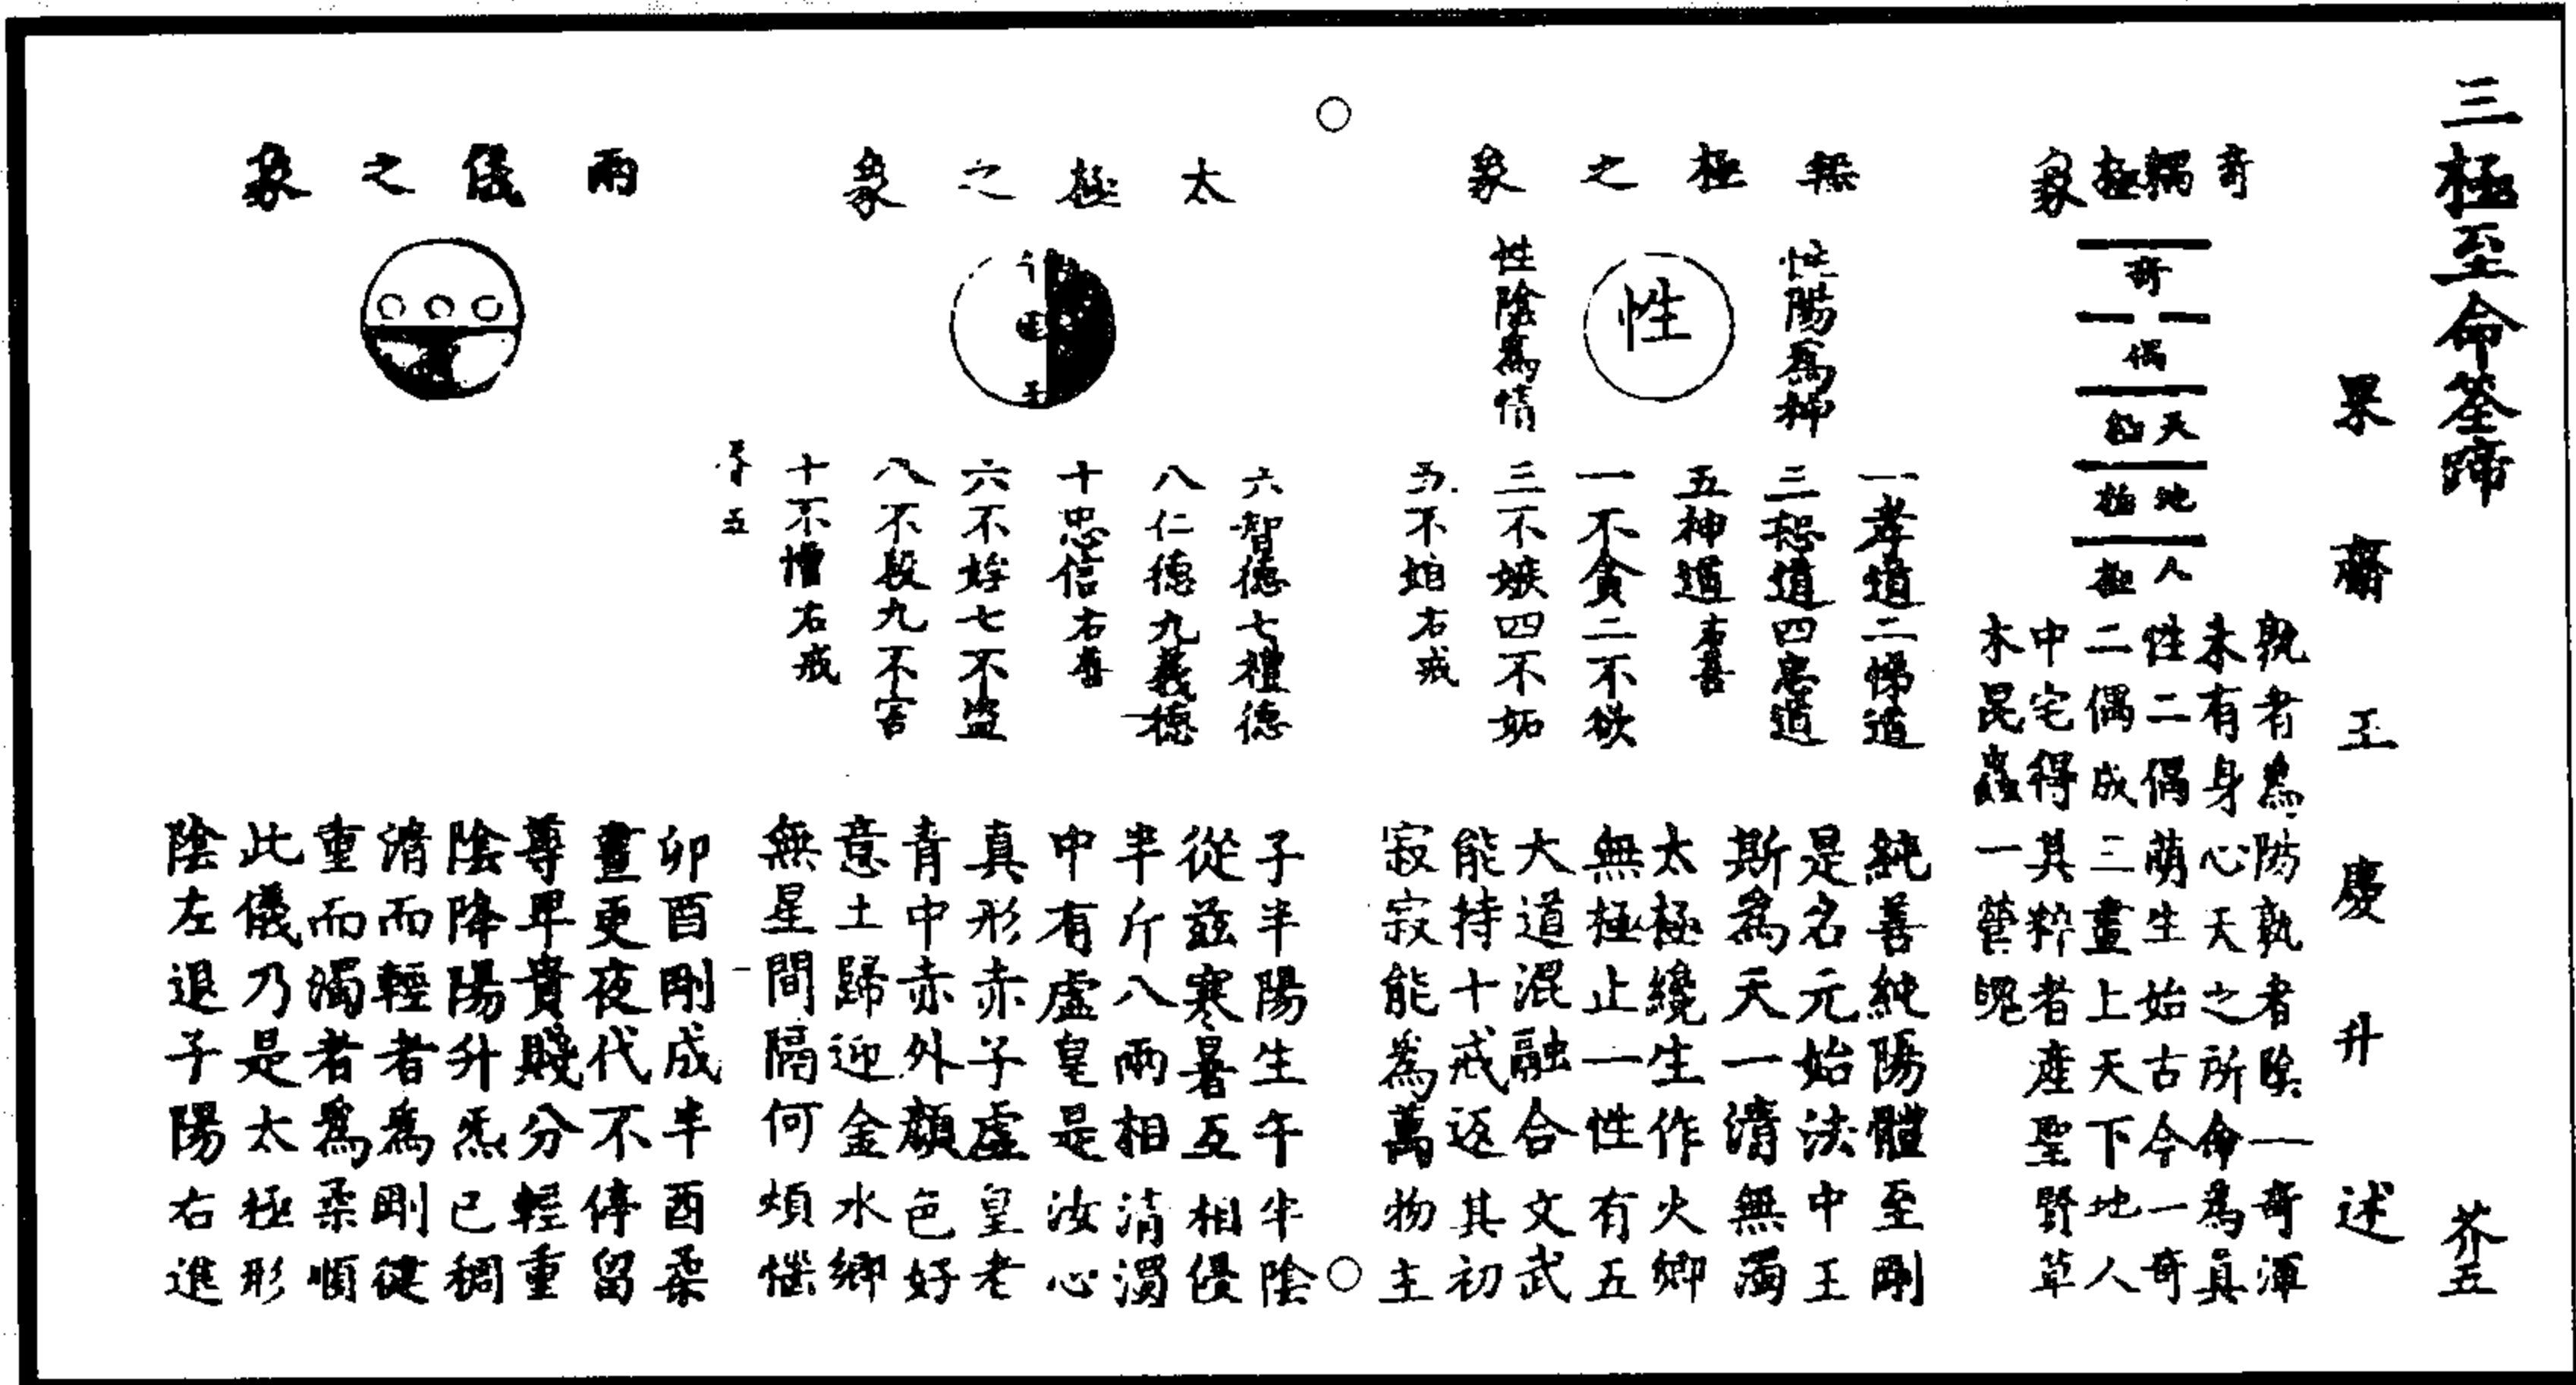 三極至命荃蹄
芥五
果齋王慶升述
奇耦極象
奇
偶
天極
地極
人極
孰者為陽孰者陰一奇渾
未有身心天之所命為真
性二偶萌生始古今一奇
二偶成三畫上天下地人
中宅得其粹者產聖賢草
木昆蟲一營魄
無極之象
性陽為神
性
性陰為情
一孝道二悌道
三恕道四忠道
五神道右善
一不貪二不欲
三不嫉四不妬
五不右戒
純善純陽體至剛
是名元始法中王
斯為天一清無濁
太極纔生作火鄉
無極止一性有五
大道混融合文武
能持十戒返其初
寂寂能為萬物主
太極之象
六智德七禮德
八仁德九義德
十忠信右善
六不七不盜
八不殺九不害
十不憎右戒
五
子半陽生午半陰
從茲寒暑互相侵
半斤八兩相清濁
中有虛皇是汝心
真形赤子虛皇老
青中赤外顏色好
意土歸迎金水鄉
無星間隔何煩惱
兩儀之象
卯酉剛成半酉柔
晝更夜代不停留
尊卑貴賤分輕重
陰降陽升炁已稠
清而輕者為剛健
重而濁者為柔順
此儀乃是太極形
陰左退子陽右進